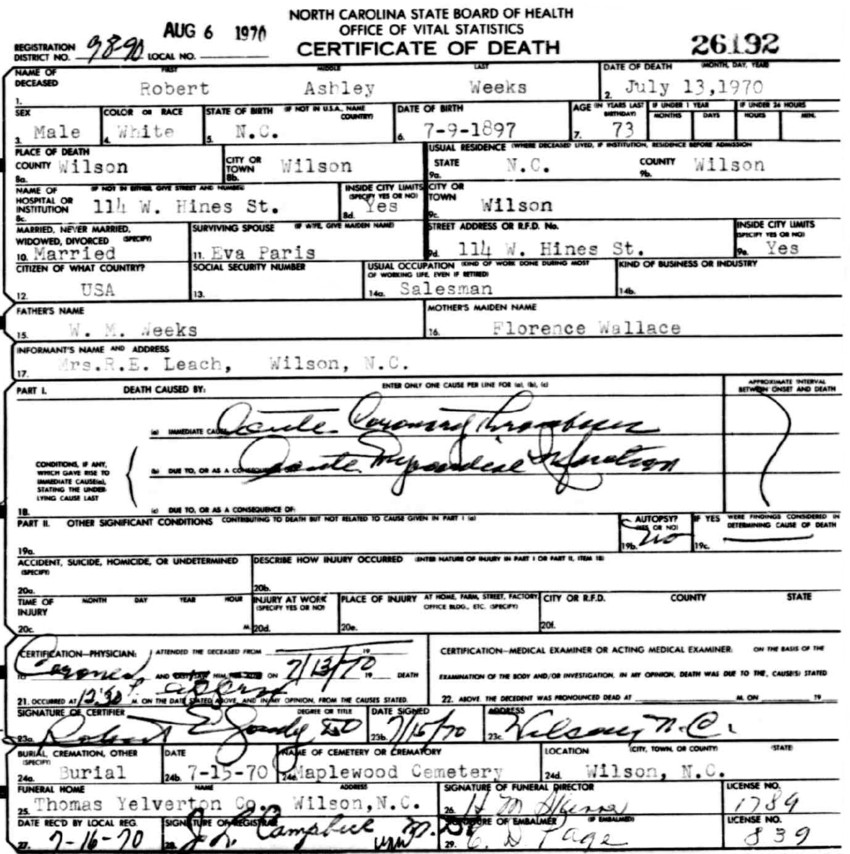 NORTH CAROLINA STATE BOARD OF HEALTH
AUG 6 1970 OFFICE OF VITAL STATISTICS
REGISTRATION DISTRICT NO. 98-90 LOCAL NO. CERTIFICATE OF DEATH 26192
NAME OF DECEASED FIRST MIDDLE LAST DATE OF DEATH (MONTH, DAY, YEAR)
1. Robert Ashley Weeks 2. July 13,1970
SEX COLOR OR RACE STATE OF BIRTH (IF NOT IN U.S.A., NAME COUNTRY) DATE OF BIRTH AGE (IN YEARS LAST BIRTHDAY) IF UNDER 1 YEAR MONTHS DAYS IF UNDER 24 HOURS HOURS MIN.
3. Male 4. White 5. N.C. 6. 7-9-1897 7. 73
PLACE OF DEATH USUAL RESIDENCE (WHERE DECEASED LIVED, IF INSTITUTION, RESIDENCE BEFORE ADMISSION
COUNTY Wilson CITY OR TOWN Wilson STATE N.C. COUNTY Wilson
8a. 8b. 9a. 9b.
NAME OF HOSPITAL OR INSTITUTION (IF NOT IN EITHER, GIVE STREET AND NUMBER) INSIDE CITY LIMITS (SPECIFY YES OR NO) CITY OR TOWN
8c. 114 W. Hines St. 8d. Yes 9c. Wilson
MARRIED, NEVER MARRIED, WIDOWED, DIVORCED (SPECIFY) SURVIVING SPOUSE (IF WIFE, GIVE MAIDEN NAME) STREET ADDRESS OR R.F.D. No. INSIDE CITY LIMITS (SPECIFY YES OR NO)
10. Married 11. Eva Paris 9d. 114 W. Hines St. 9e. Yes
CITIZEN OF WHAT COUNTRY? SOCIAL SECURITY NUMBER USUAL OCCUPATION (KIND OF WORK DONE DURING MOST OF WORKING LIFE, EVEN IF RETIRED) KIND OF BUSINESS OR INDUSTRY
12. USA 13. 14a. Salesman 14b.
FATHER'S NAME MOTHER'S MAIDEN NAME
15. W. M. Weeks 16. Florence Wallace
INFORMANT'S NAME AND ADDRESS
17. Mrs.R.E. Leach, Wilson, N.C.
PART I. DEATH CAUSED BY: ENTER ONLY ONE CAUSE PER LINE FOR (a), (b), (c) APPROXIMATE INTERVAL BETWEEN ONSET AND DEATH
(a) IMMEDIATE CAUSE Acute Coronary Thrombosis
CONDITIONS, IF ANY, WHICH GAVE RISE TO IMMEDIATE CAUSE(a), STATING THE UNDERLYING CAUSE LAST
(b) DUE TO, OR AS A CONSEQUENCE Acute Myocardial Infarction
18. (c) DUE TO, OR AS A CONSEQUENCE OF:
PART II. OTHER SIGNIFICANT CONDITIONS CONTRIBUTING TO DEATH BUT NOT RELATED TO CAUSE GIVEN IN PART I (a) AUTOPSY? (YES OR NO) IF YES WERE FINDINGS CONSIDERED IN DETERMINING CAUSE OF DEATH
19a. 19b. No 19c.
ACCIDENT, SUICIDE, HOMICIDE, OR UNDETERMINED (SPECIFY) DESCRIBE HOW INJURY OCCURRED (ENTER NATURE OF INJURY IN PART I OR PART II, ITEM 18)
20a. 20b.
TIME OF INJURY MONTH DAY YEAR HOUR INJURY AT WORK (SPECIFY YES OR NO) PLACE OF INJURY AT HOME, FARM, STREET, FACTORY OFFICE BLDG., ETC. (SPECIFY) CITY OR R.F.D. COUNTY STATE
20c. M. 20d. 20e. 20f.
CERTIFICATION—PHYSICIAN: I ATTENDED THE DECEASED FROM 19 CERTIFICATION—MEDICAL EXAMINER OR ACTING MEDICAL EXAMINER: ON THE BASIS OF THE
Coroner AND HIM ON 7/13/70 19 DEATH EXAMINATION OF THE BODY AND/OR INVESTIGATION, IN MY OPINION, DEATH WAS DUE TO THE, CAUSE(S) STATED
21. OCCURRED AT 12:30 M. ON THE DATE STATED ABOVE, AND IN MY OPINION, FROM THE CAUSES STATED. 22. ABOVE. THE DECEDENT WAS PRONOUNCED DEAD AT M. ON 19
SIGNATURE OF CERTIFIER DEGREE OR TITLE DATE SIGNED ADDRESS
23a. Robert E 23b. 7/15/70 23c. Wilson, N.C.
BURIAL, CREMATION, OTHER (SPECIFY) DATE NAME OF CEMETERY OR CREMATORY LOCATION (CITY, TOWN, OR COUNTY) (STATE)
24a. Burial 24b. 7-15-70 24c. Maplewood Cemetery 24d. Wilson, N.C.
FUNERAL HOME NAME ADDRESS SIGNATURE OF FUNERAL DIRECTOR LICENSE NO.
25. Thomas Yelverton Co., Wilson,N.C. 26. 1789
DATE REC'D BY LOCAL REG. SIGNATURE OF REGISTRAR SIGNATURE OF EMBALMER (IF EMBALMED) LICENSE NO.
27. 7-16-70 28. Campbell 29. C D Page 839